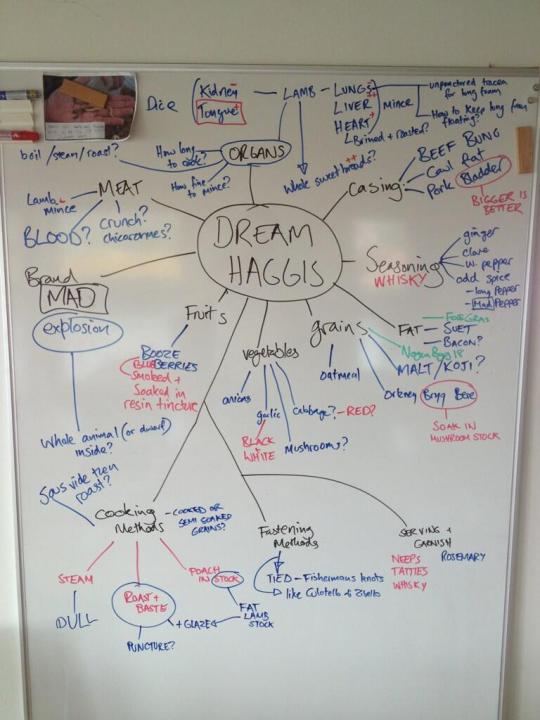 DREAM
HAGGIS
ORGANS
Dice
Kidney
Tongue+
LAMB
LUNGS
LIVER
HEART
Mince
Brined + roasted?
Whole sweetbreads? ++
unpunctured
for lung foam
How to keep lung from
floating?
How long
to cook?
How fine
to mince?
boil/steam/roast?
MEAT
Lamb
mince
BLOOD?
crunch?
Casing:
BEEF BUNG
Caul Fat
Pork Bladder
BIGGER IS
BETTER
Seasoning
WHISKY
ginger
clove
w. pepper
odd spice
- long Pepper
- Mad Pepper
FAT
FOIE GRAS
SUET
BACON?
grains
oatmeal
MALT / KOJI?
Orkney Bere
SOAK IN
MUSHROOM STOCK
vegetables
onions
garlic
BLACK
WHITE
Cabbage? - RED?
Mushrooms?
Fruits
BOOZE
BLUEBERRIES
Smoked +
Soaked in
resin tincture
Brand
MAD
explosion
Whole animal (or dwarf)
inside?
Sous vide then
roast?
Cooking
Methods
- COOKED OR
SEMI SOAKED
GRAINS?
STEAM
DULL
ROAST +
BASTE
PUNCTURE?
POACH
IN STOCK
FAT
LAMB
STOCK
+ GLAZE
Fastening
Methods
TIED - Fishermans knots
like Culatello &
SERVING +
GARNISH
NEEPS
TATTIES
WHISKY
ROSEMARY